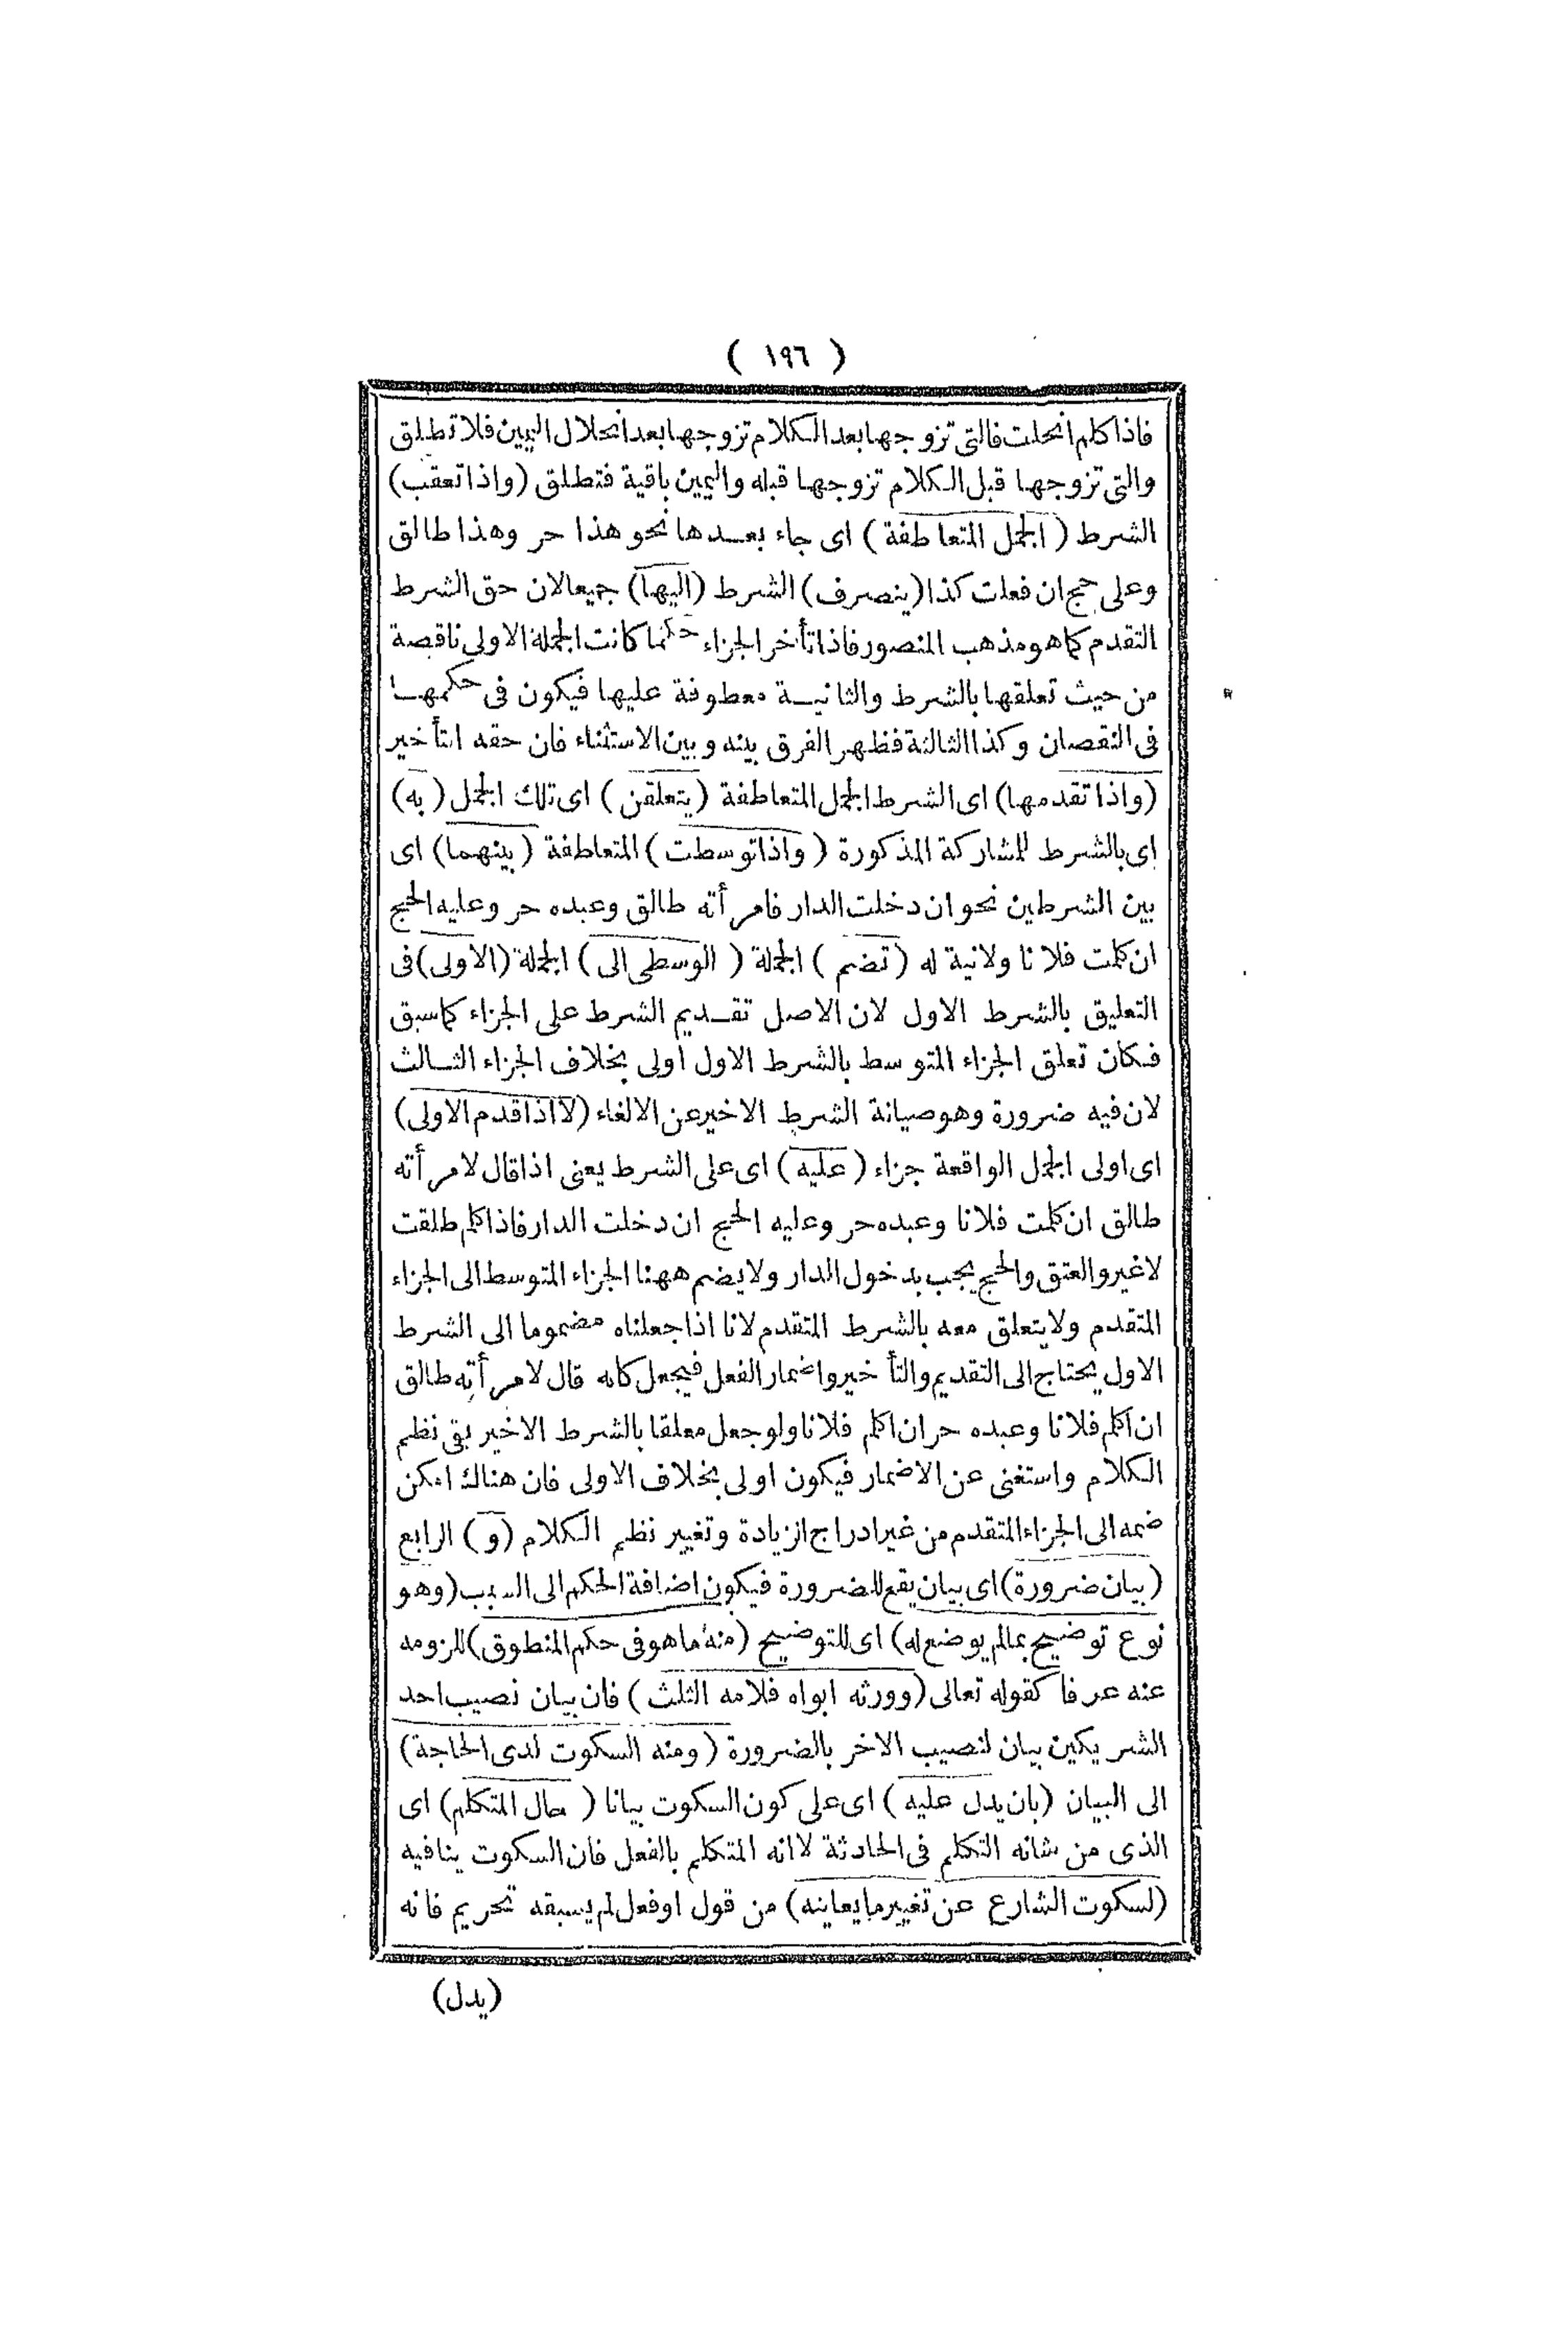 ( ١٩٦ )
فاذا كلم انحلت فالتى تزوجها بعد الكلام تزوجها بعد انحلال اليمين فلا تطلق
والتى تزوجها قبل الكلام تزوجها قبله واليمين باقية فتطلق (واذا تعقب)
الشرط ( الجمل المتعاطفة ) اى جاء بعدها نحو هذا حر وهذا طالق
وعلى حج ان فعلت كذا (ينصرف) الشرط (اليها) جميعا لان حق الشرط
التقدم كما هو مذهب المنصور فاذا تأخر الجزاء حكما كانت الجملة الاولى ناقصة
من حيث تعلقها بالشرط والثانية معطوفة عليها فيكون فى حكمها
فى النقصان وكذا الثالثة فظهر الفرق بينه وبين الاستثناء فان حقه التأخير
(واذا تقدمها) اى الشرط الجمل المتعاطفة (يتعلقن ) اى تلك الجمل (به)
اى بالشرط للمشاركة المذكورة ( واذا توسطت ) المتعاطفة (بينهما) اى
بين الشرطين نحو ان دخلت الدار فامرأته طالق وعبده حر وعليه الحج
ان كلمت فلانا ولا نية له (تضم ) الجملة ( الوسطى الى ) الجملة (الاولى) فى
التعليق بالشرط الاول لان الاصل تقديم الشرط على الجزاء كما سبق
فكان تعلق الجزاء المتوسط بالشرط الاول اولى بخلاف الجزاء الثالث
لان فيه ضرورة وهو صيانة الشرط الاخير عن الالغاء (لا اذا قدم الاولى)
اى اولى الجمل الواقعة جزاء (عليه ) اى على الشرط يعنى اذا قال لامرأته
طالق ان كلمت فلانا وعبده حر وعليه الحج ان دخلت الدار فاذا كلم طلقت
لا غير والعتق والحج يجب بدخول الدار ولا يضم ههنا الجزاء المتوسط الى الجزاء
المتقدم ولا يتعلق معه بالشرط المتقدم لانا اذا جعلناه مضموما الى الشرط
الاول يحتاج الى التقديم والتأخير واضمار الفعل فيجعل كانه قال لامرأته طالق
ان اكلم فلانا وعبده حر ان اكلم فلانا ولو جعل معلقا بالشرط الاخير بقى نظم
الكلام واستغنى عن الاضمار فيكون اولى بخلاف الاولى فان هناك امكن
ضمه الى الجزاء المتقدم من غير ادراج الزيادة وتغيير نظم الكلام (و) الرابع
(بيان ضرورة) اى بيان يقع للضرورة فيكون اضافة الحكم الى السبب (وهو
نوع توضيح بما لم يوضع له) اى للتوضيح (منه ما هو فى حكم المنطوق) للزومه
عنه عرفا كقوله تعالى (وورثه ابواه فلامه الثلث ) فان بيان نصيب احد
الشريكين بيان لنصيب الاخر بالضرورة (ومنه السكوت لدى الحاجة)
الى البيان (بان يدل عليه ) اى على كون السكوت بيانا ( حال المتكلم) اى
الذى من شانه التكلم فى الحادثة لا انه المتكلم بالفعل فان السكوت ينافيه
(لسكوت الشارع عن تغيير ما يعاينه) من قول او فعل لم يسبقه تحريم فانه
(يدل)